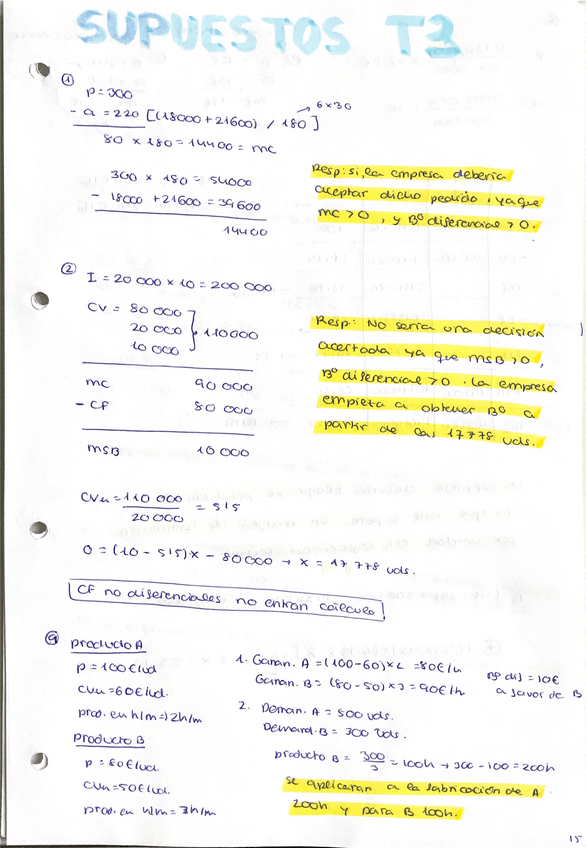 SUPUESTOS T3
①
p = 300
6 x 30
- a = 220 [(18000 + 21600) / 180]
80 x 180 = 14400 = mc
300 x 180 = 54000
- 18000 + 21600 = 39600
14400
Resp: si, la empresa debería
aceptar dicho pedido, ya que
mc > 0, y Bº diferencial > 0.
②
I = 20 000 x 10 = 200 000
CV = 80 000
20 000
10 000
110000
mc 90 000
- CF 80 000
MSB 10 000
Resp: No sería una decisión
acertada ya que MSB > 0,
Bº diferencial > 0. La empresa
empieza a obtener Bº a
partir de las 17778 uds.
CVu = 110 000 / 20 000 = 5'5
0 = (10 - 5'5)x - 80000 → x = 17 778 uds.
CF no diferenciales no entran cálculo
⑨ producto A
p = 100€/ud
cvu = 60€/ud.
prod. en h/m => 2h/m
producto B
p = 80€/ud.
cvu = 50€/ud.
prod. en h/m = 3h/m
1. Ganan. A = (100-60) x 2 = 80€/h
Ganan. B = (80-50) x 3 = 90€/h
Bº dif = 10€
a favor de B
2. Deman. A = 500 uds.
Demand. B = 300 uds.
producto B = 300/3 = 100h → 300 - 100 = 200h
se aplicaran a la fabricación de A
200h y para B 100h.
15